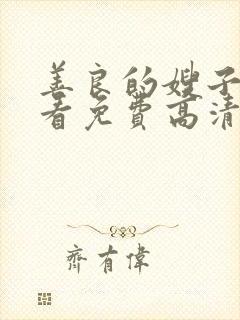 善良的嫂子
看免费高清
齊有偉